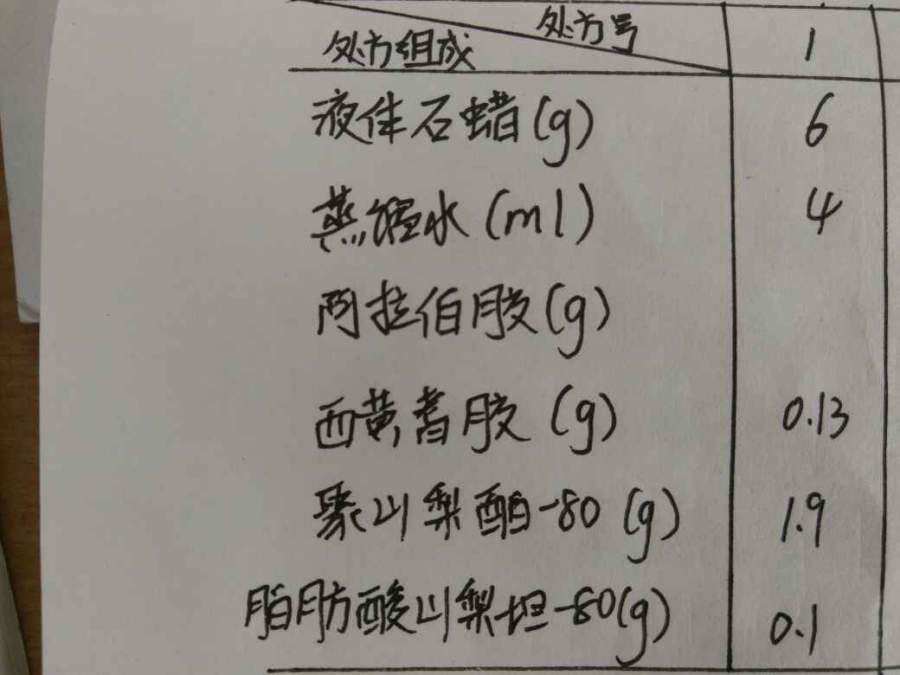 处方号 1
处方组成
液体石蜡(g) 6
蒸馏水(ml) 4
阿拉伯胶(g)
西黄蓍胶(g) 0.13
聚山梨酯-80(g) 1.9
脂肪酸山梨坦-80(g) 0.1